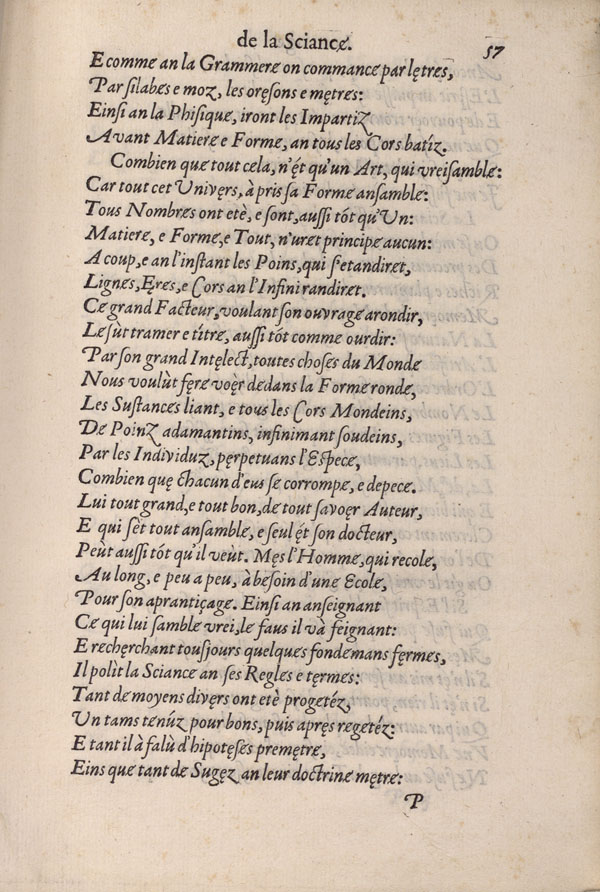 de la Sciancę.
57
E comme an la Grammerę on commancę par lętręs,
Par silabęs e moz, les oręsons e mętręs:
Einsi an la Phisiquę, iront les Impartiz
Avant Matierę e Formę, an tous les Cors batiz.
Combien quę tout cela, n'ęt qu'un Art, qui vreisamblę:
Car tout cet Univęrs, à pris sa Formę ansamblę:
Tous Nombręs ont etè, e sont, aussi tót qu'Un:
Matierę, e Formę, e Tout, n'uręt principę aucun:
A coup, e an l'instant les Poins, qui s'etandiręt,
Lignęs, Eręs, e Cors an l'Infini randiręt.
Cę grand Facteur, voulant son ouvragę arondir,
Lę sùt tramer e titrę, aussi tót commę ourdir:
Par son grand Intęlect, toutęs chosęs du Mondę
Nous voulùt fęrę voęr dędans la Formę rondę,
Les Sustancęs liant, e tous les Cors Mondeins,
Dę Poinz adamantins, infinimant soudeins,
Par les Individuz, pęrpetuans l'Especę,
Combien quę chacun d'eus sę corrompę, e depecę.
Lui tout grand, e tout bon, dę tout savoęr Auteur,
E qui sèt tout ansamblę, e seul ęt son docteur,
Peùt aussi tót qu'il veùt. Męs l'Hommę, qui recolę,
Au long, e peu a peu, à bęsoin d'unę Ecolę,
Pour son aprantiçagę. Einsi an anseignant
Cę qui lui samblę vrei, lę faus il và feignant:
E ręchęrchant tousjours quelquęs fondęmans fęrmęs,
Il polìt la Sciancę an ses Reglęs e tęrmęs:
Tant dę moyens divęrs ont etè progetéz,
Un tams tenúz pour bons, puis apręs regetéz:
E tant il à falù d'hipotęsęs premętrę,
Eins quę tant dę Sugęz an leur doctrinę mętrę:
P